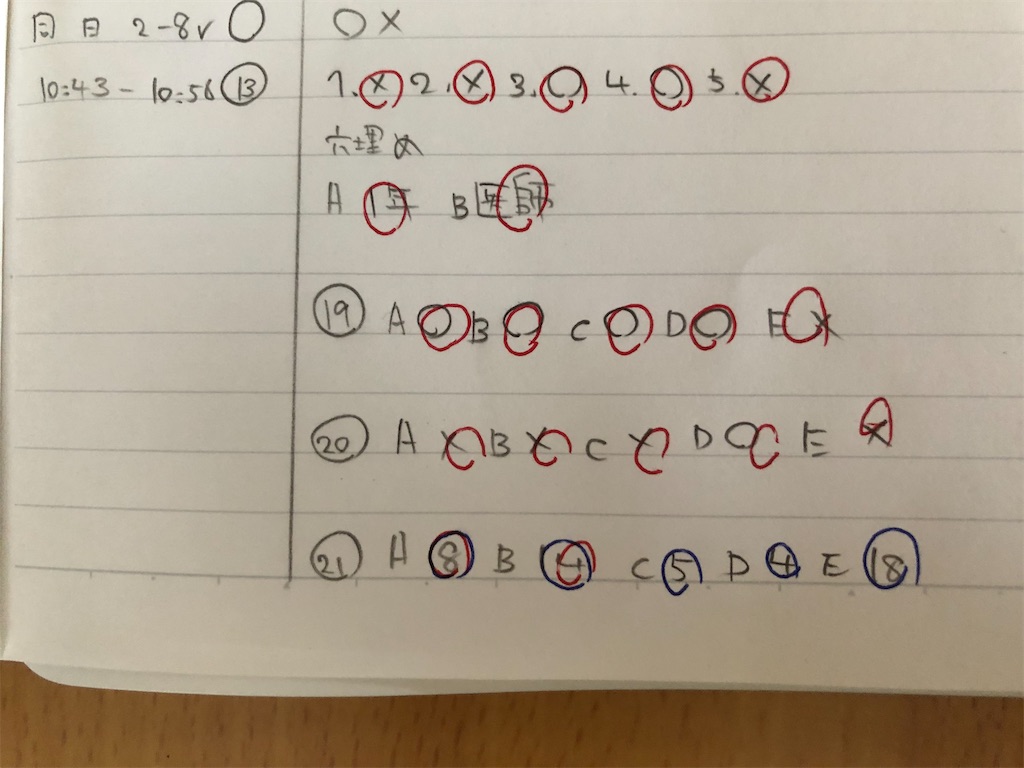 同日 2-8√ ○ ○ ×
10:43 - 10:56 ⑬ 1. × 2. × 3. ○ 4. ○ 5. ×
穴埋め
A 1年 B 医師
⑲ A ○ B ○ C ○ D ○ E ×
⑳ A × B × C × D ○ E ×
㉑ A 8 B 14 C 5 D 4 E 18